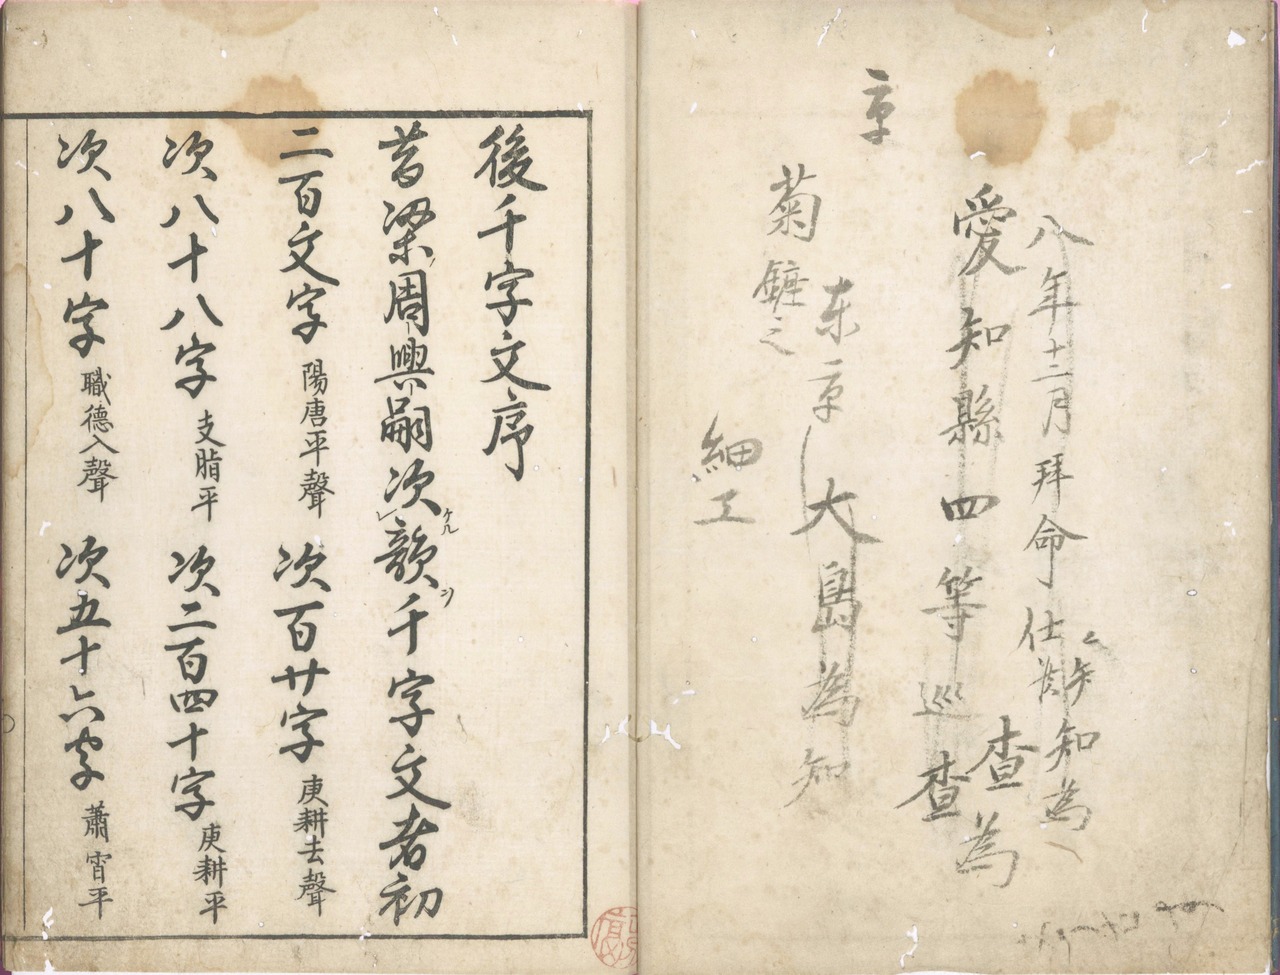 八年十二月拜命仕
知為
愛知縣四等巡查
查為
京
东京
大島為知
菊
之
細工
後千字文序
昔梁周興嗣次韻千字文者初
二百文字陽唐平聲次百廿字庚耕去聲
次八十八字支脂平次二百四十字庚耕平
次八十字職德入聲次五十六字蕭宵平